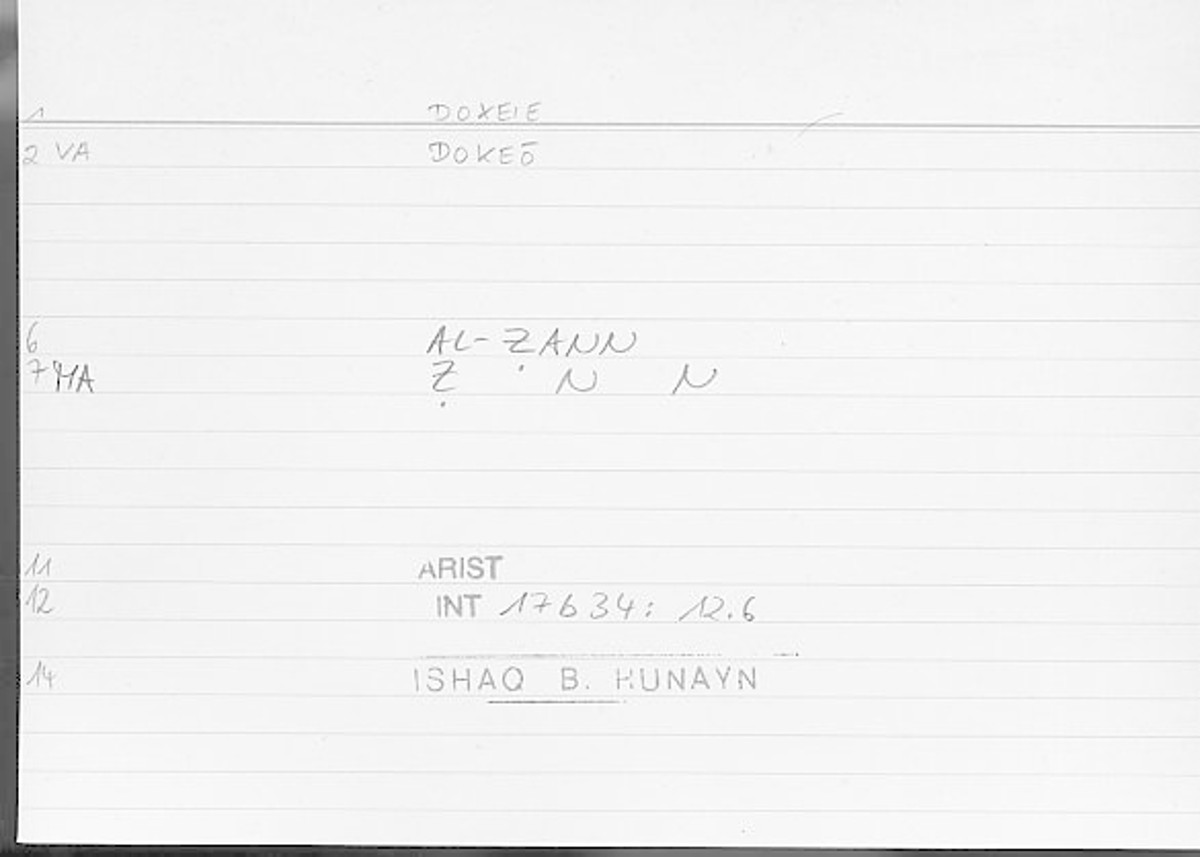 1 DOXEIE
2 VA DOKEŌ
6 AL-ẒANN
7 MA Ẓ N N
11 ARIST
12 INT 17b34: 12.6
14 ISHAQ B. HUNAYN